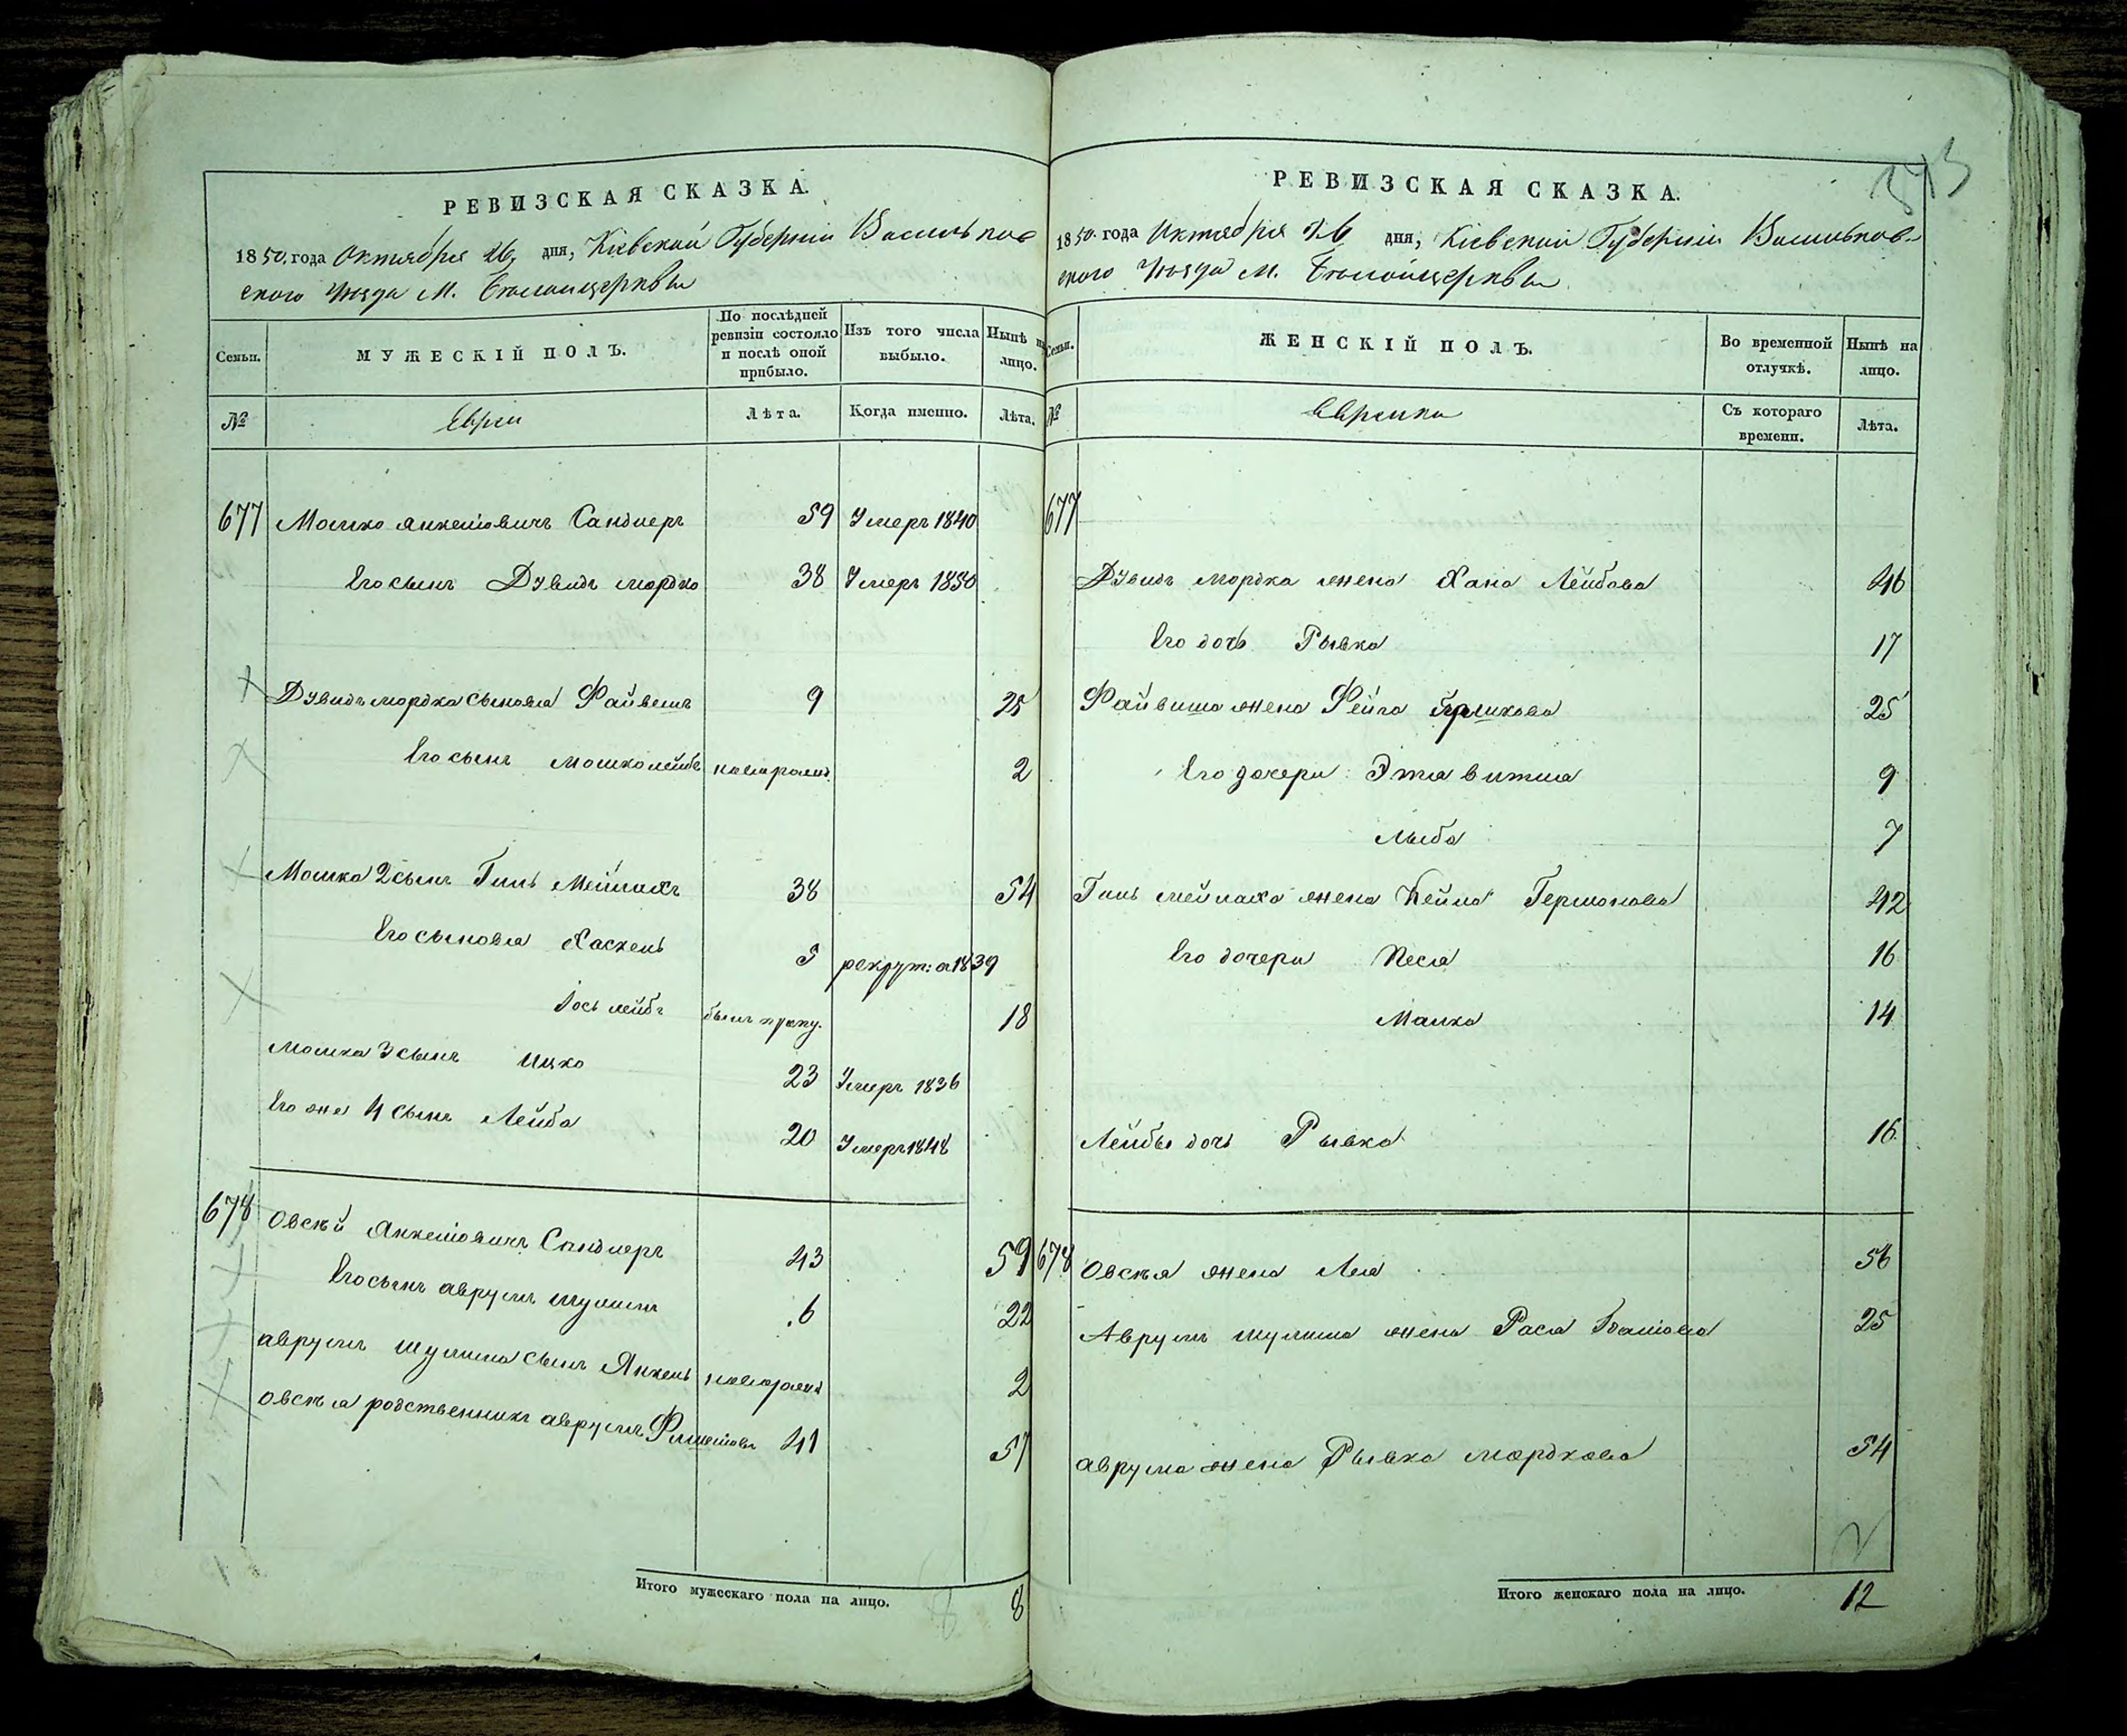 РЕВИЗСКАЯ СКАЗКА.
1850. года Октября 26, дня, Кіевской Губерніи Васильков
ского Уѣзда М. Бѣлойцеркви
Семьи.
МУЖЕСКІЙ ПОЛЪ.
По послѣдней ревизіи состояло и послѣ оной прибыло.
Изъ того числа выбыло.
Нынѣ на лицо.
№
Евреи
Лѣта.
Когда именно.
Лѣта.
677 Мошко Янкеліовичъ Сандлеръ 59 Умеръ 1840
Его сынъ Дувидъ мордко 38 Умеръ 1850
Дувидъ мордка сыновья Файвешъ 9 25
Его сынъ мошколейбъ новорожд. 2
Мошка 2 сынъ Гиль Мейлахъ 38 54
Его сыновья Хаскель 5 рекрут: в 1839
Іось лейбъ былъ пропу. 18
Мошка 3 сынъ Ицко 23 Умеръ 1836
Его же 4 сынъ Лейба 20 Умеръ 1848
678 Овсѣй Янкеліовичъ Сандлеръ 43 59
Его сынъ аврумъ шулимъ 6 22
аврумъ шулима сынъ Янкель новорожд 2
Овсѣя родственникъ аврумъ 41 57
Итого мужескаго пола на лицо. 8
343
РЕВИЗСКАЯ СКАЗКА.
1850. года Октября 26 дня, Кіевской Губерніи Васильков-
ского Уѣзда М. Бѣлойцеркви
Семьи.
ЖЕНСКІЙ ПОЛЪ.
Во временной отлучкѣ.
Нынѣ на лицо.
№
Еврейки
Съ котораго времени.
Лѣта.
677
Дувидъ мордка жена Хана Лейбова 46
Его дочь Рывка 17
Файвиша жена Фейга Гершкова 25
Его дочери Эта витля 9
Лыба 7
Гиль мейлаха жена Бейла Гершонова 42
Его дочери Песя 16
Малка 14
Лейбы дочь Рывка 16
678 Овсѣя жена Лея 56
Аврумъ шулима жена Рася 25
аврума жена Рывка мордкова 54
Итого женскаго пола на лицо. 12